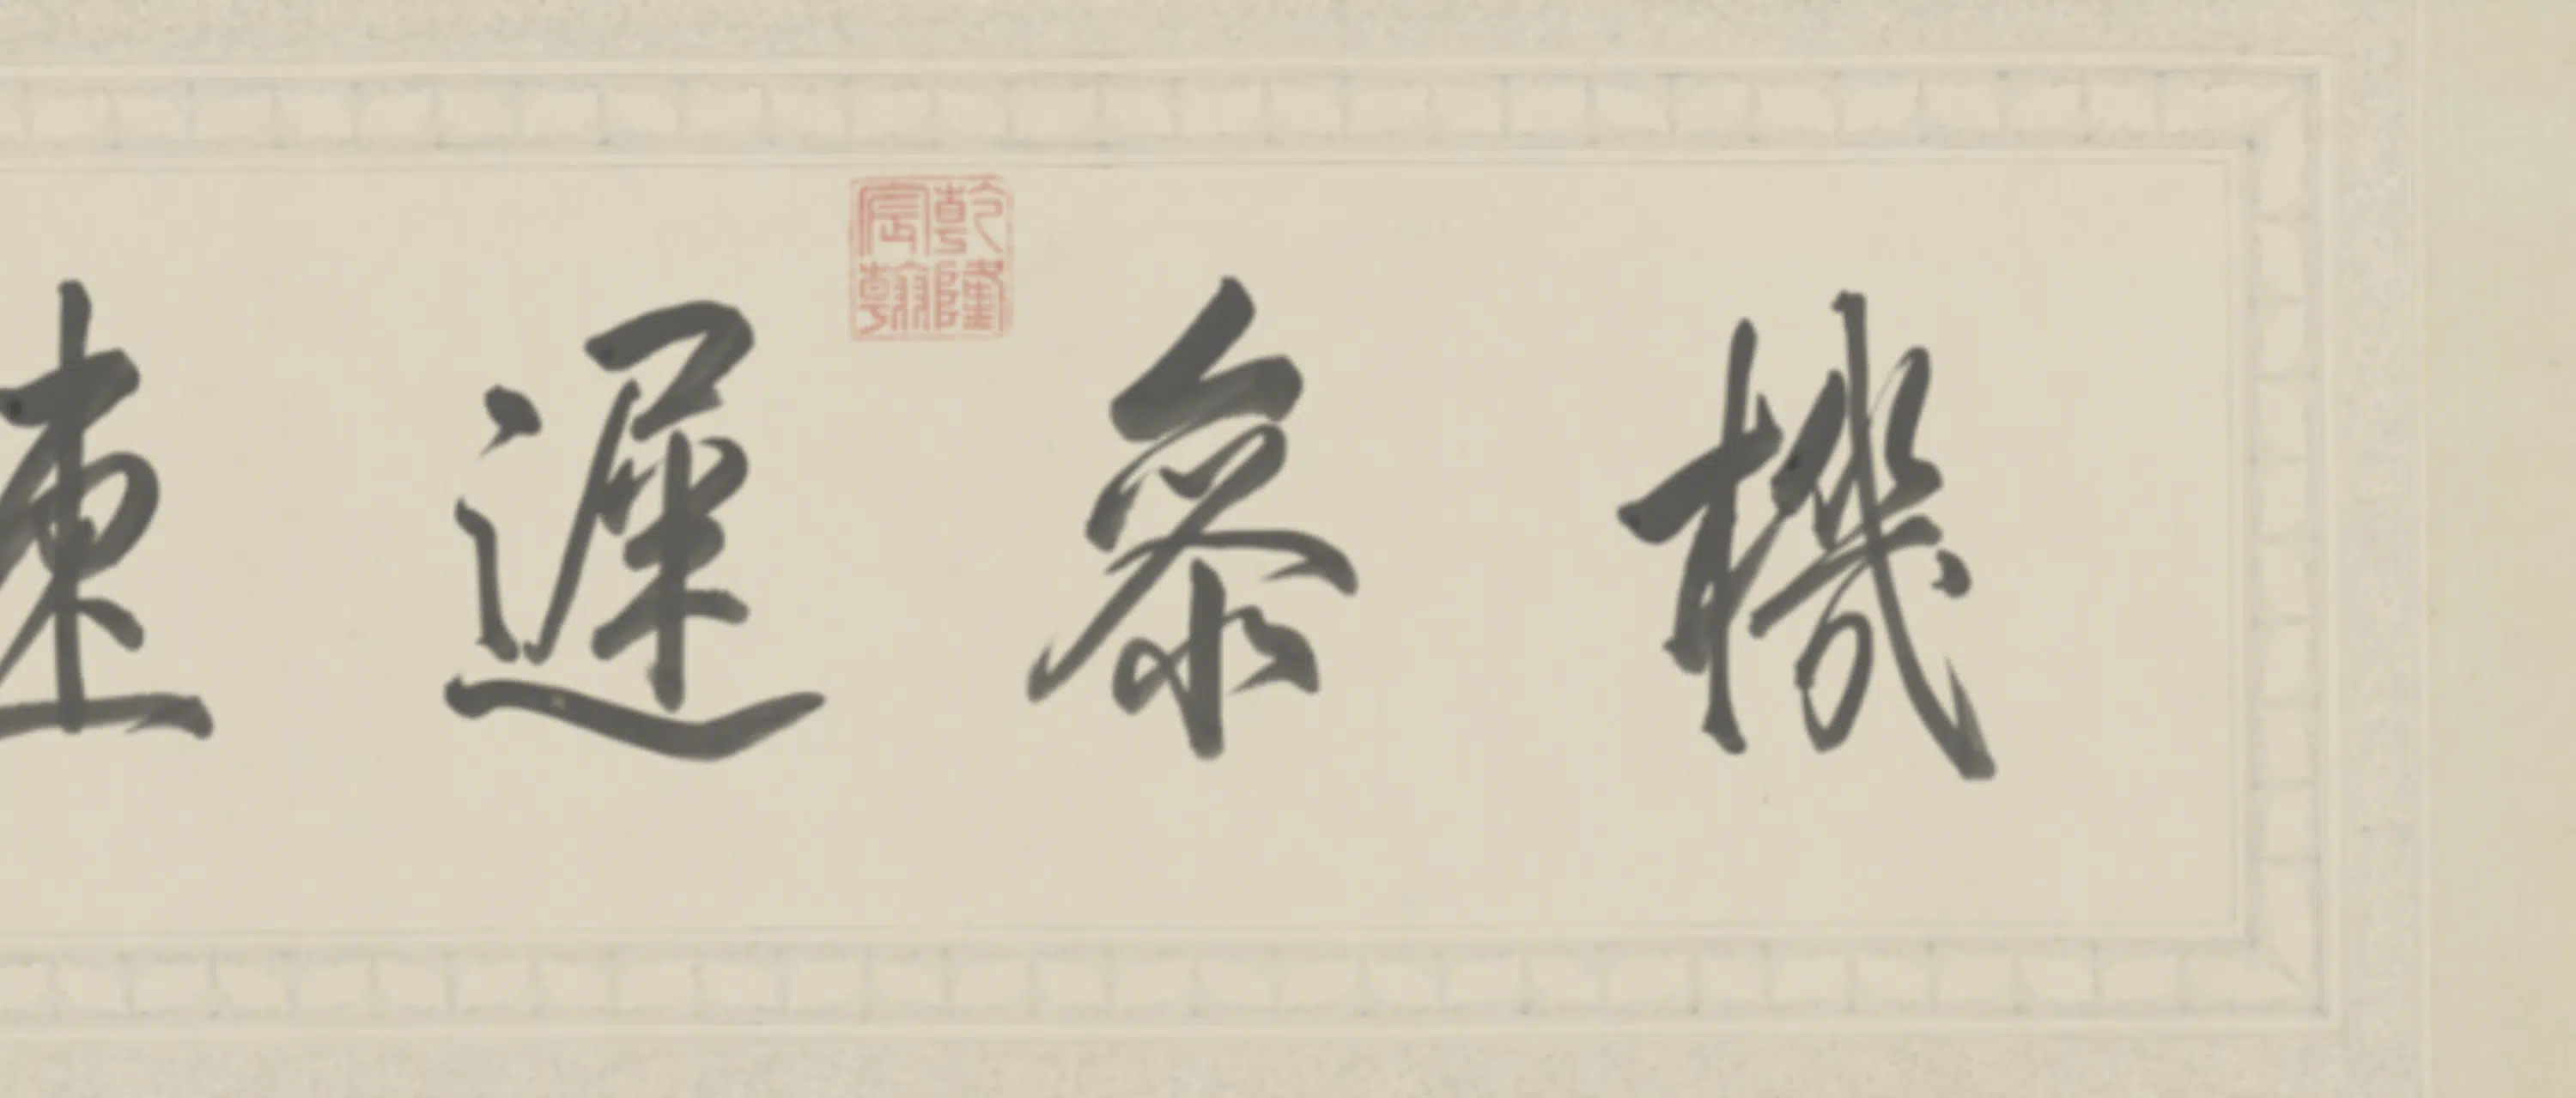 機參遲速
乾隆宸翰